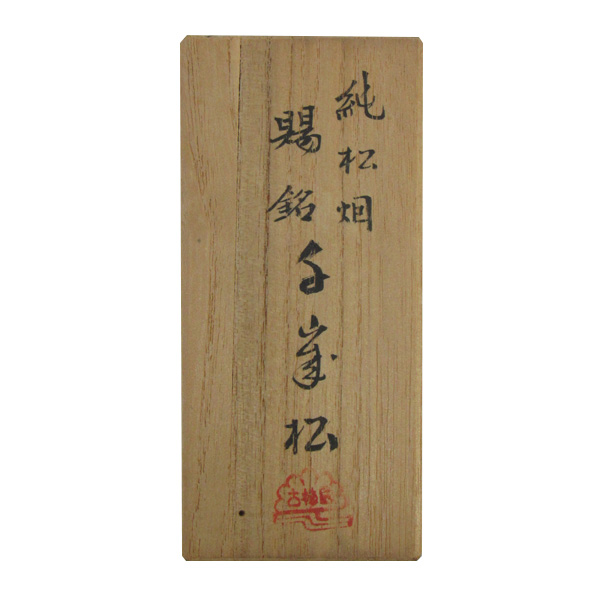 純松烟
賜銘
千歳松
古梅園